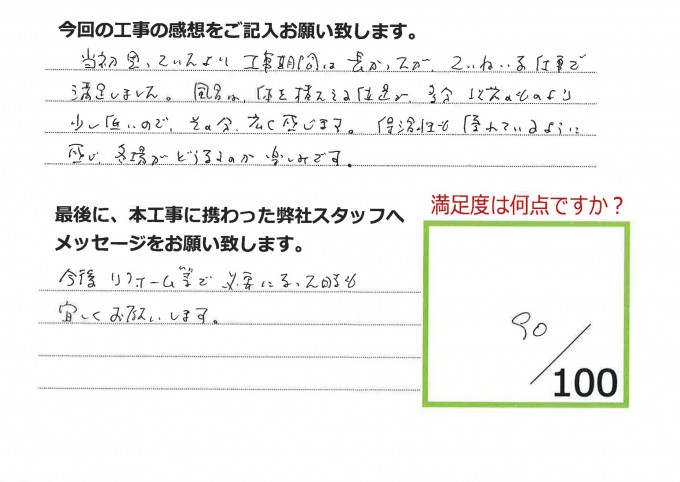 今回の工事の感想をご記入お願い致します。
当初思っていたより工事期間は長かったが、ていねいな仕事で
満足しました。風呂は、体を横えてる位置が、多分以大のものより
少し低いので、その分、広く感じます。保温性も優れているように
感じ、冬場がどうなるのか楽しみです。
最後に、本工事に携わった弊社スタッフへ
メッセージをお願い致します。
今後リフォーム等で必要になった時も
宜しくお願いします。
満足度は何点ですか？
90
100